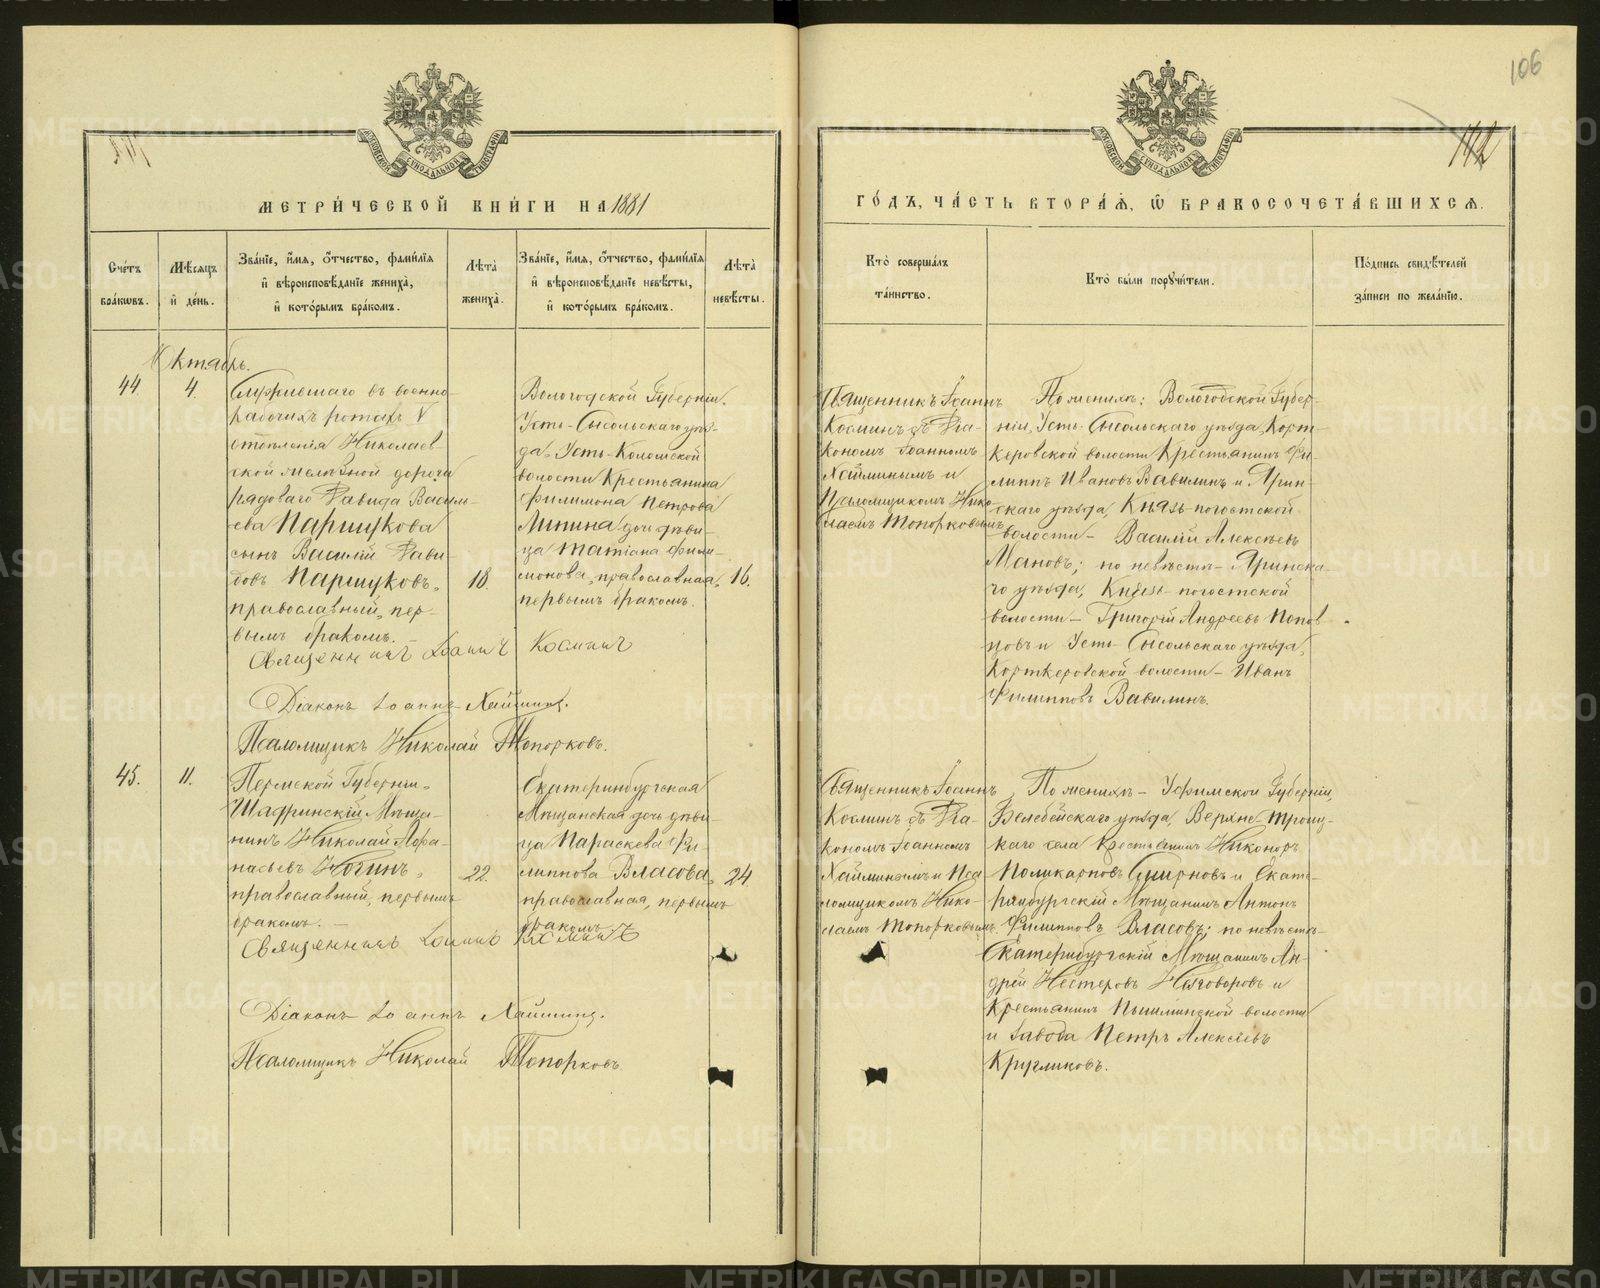 106
142
МОСКОВСКОЙ СѴНОДАЛЬНОЙ ТИПОГРАФІИ
МОСКОВСКОЙ СѴНОДАЛЬНОЙ ТИПОГРАФІИ
МЕТРИ́ЧЕСКОЙ КНИ́ГИ НА 1881
ГО́ДЪ, ЧА́СТЬ ВТОРА́Ѧ, Ѡ БРАКОСОЧЕТА́ВШИХСѦ.
Сче́тъ бра́ковъ.
Мѣ́сяцъ и́ де́нь.
Зва́нїе, и́мя, о́тчество, фами́лїя и́ вѣроисповѣ́данїе жениха̀, и́ кото́рымъ бра́комъ.
Лѣ́та жениха̀.
Зва́нїе, и́мя, о́тчество, фами́лїя и́ вѣроисповѣ́данїе невѣ́сты, и́ кото́рымъ бра́комъ.
Лѣ́та невѣ́сты.
Кто̀ соверша́лъ та́инство.
Кто̀ бы́ли порꙋчи́тели.
По́дпись свидѣ́телей за́писи по жела́нїю.
Октябрь.
44
4.
Служившаго въ военно-
рабочихъ ротахъ V
отдѣленія Николаев-
ской желѣзной дороги
рядоваго Давида Василь-
ева Паршукова
сынъ Василій Дави-
довъ Паршуковъ,
православный, пер-
вымъ бракомъ.
18.
Вологодской Губерніи,
Усть-Сысольскаго уѣз-
да, Усть-Коломской
волости Крестьянина
Филимона Петрова
Липина дочь дѣви-
ца Татіана Фили-
монова, православная,
первымъ бракомъ.
16.
Священникъ Іоаннъ
Косминъ съ Діа-
кономъ Іоанномъ
Хайминымъ и
Псаломщикомъ Нико-
лаемъ Топорковымъ
По женихѣ: Вологодской Губер-
ніи, Усть-Сысольскаго уѣзда, Корт-
керовской волости Крестьянинъ Фи-
липпъ Ивановъ Вавилинъ и Ярин-
скаго уѣзда, Князь-погостской
волости – Василій Алексѣевъ
Мановъ; по невѣстѣ – Яринска-
го уѣзда, Князь-погостской
волости – Григорій Андреевъ Попов
цовъ и Усть-Сысольскаго уѣзда,
Корткеровской волости – Иванъ
Филипповъ Вавилинъ.
Священникъ Іоаннъ Косминъ
Діаконъ Іоаннъ Хайминъ.
Псаломщикъ Николай Топорковъ.
45.
11.
Пермской Губерніи,
Шадринскій Мѣща-
нинъ Николай Афа-
насьевъ Ногинъ,
православный, первымъ
бракомъ.
22.
Екатеринбургская
Мѣщанская дочь дѣви-
ца Параскева Фи-
липпова Власова,
православная, первымъ
бракомъ.
24.
Священникъ Іоаннъ
Косминъ съ Діа-
кономъ Іоанномъ
Хайминымъ и Пса-
ломщикомъ Нико-
лаемъ Топорковымъ.
По женихѣ – Уфимской Губерніи,
Белебейскаго уѣзда, Верхне-Троиц-
каго села Крестьянинъ Никоноръ
Поликарповъ Смирновъ и Екате-
ринбургскій Мѣщанинъ Антонъ
Филипповъ Власовъ; по невѣстѣ–
Екатеринбургскій Мѣщанинъ Ан-
дрей Нестеровъ Наговоровъ и
Крестьянинъ Пышминской волости
и завода Петръ Алексѣевъ
Кругликовъ.
Священникъ Іоаннъ Косминъ
Діаконъ Іоаннъ Хайминъ.
Псаломщикъ Николай Топорковъ.
METRIKI.GASO-URAL.RU